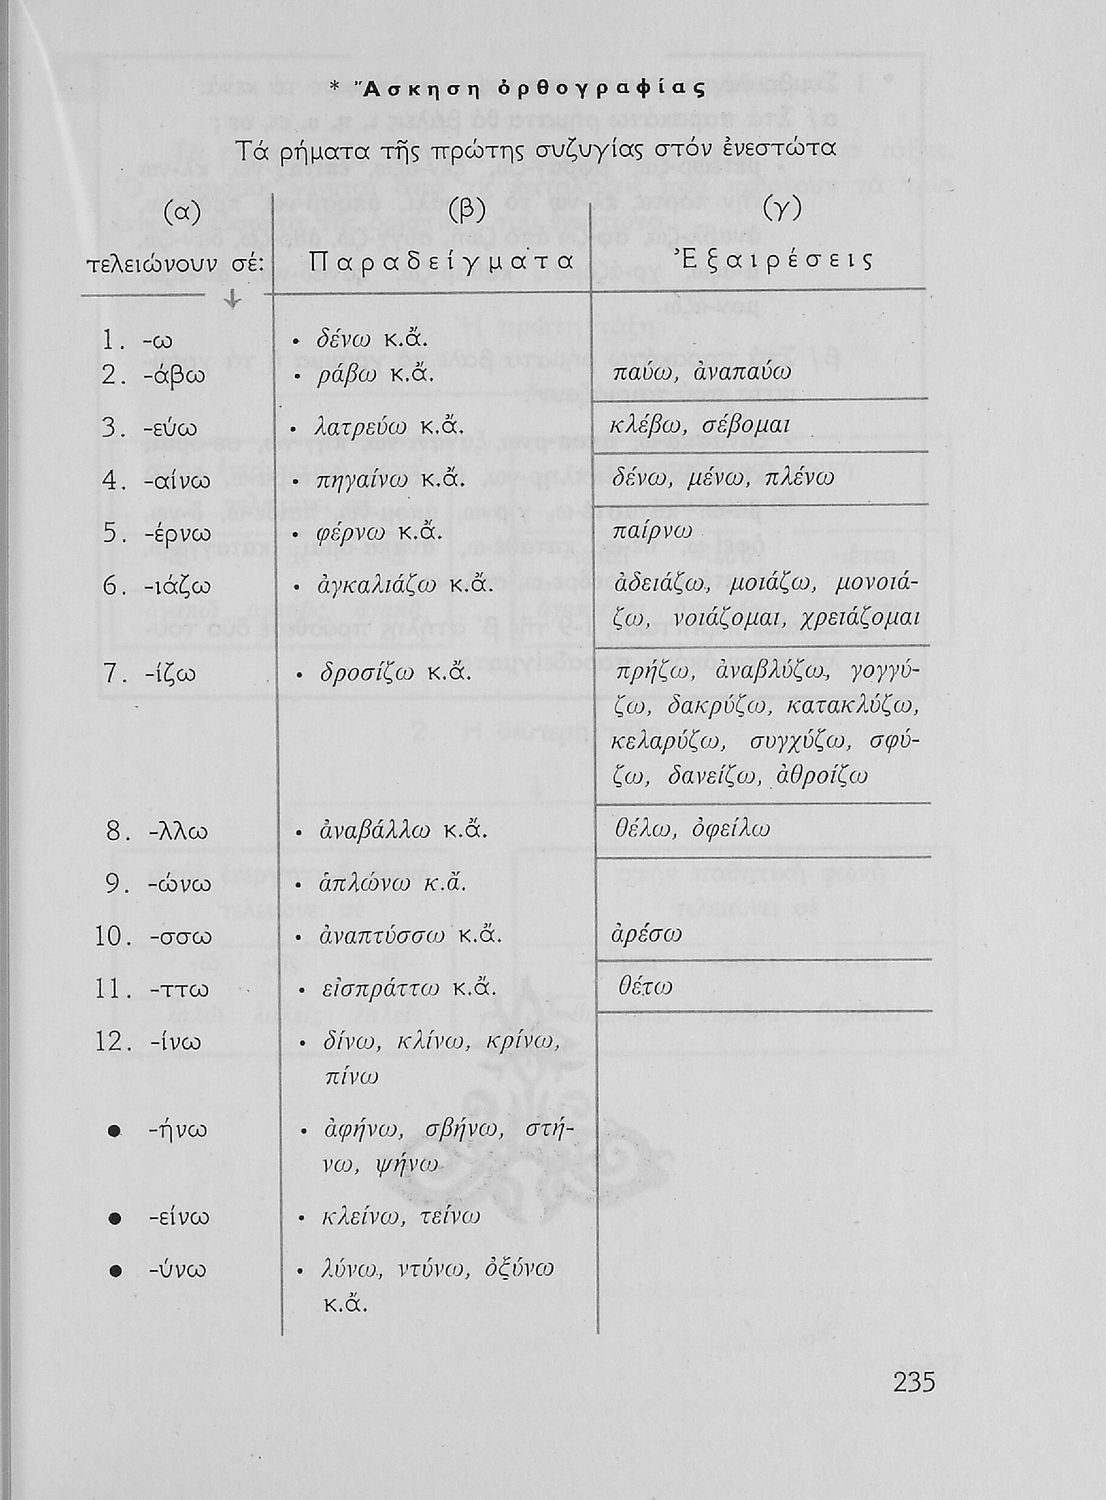 * Ἄσκηση ὀρθογραφίας
Τά ρήματα τῆς πρώτης συζυγίας στόν ἐνεστώτα
(α) (β) (γ)
τελειώνουν σέ: Παραδείγματα Ἐξαιρέσεις
1. -ω • δένω κ.ἄ.
2. -άβω • ράβω κ.ἄ. παύω, ἀναπαύω
3. -εύω • λατρεύω κ.ἄ. κλέβω, σέβομαι
4. -αίνω • πηγαίνω κ.ἄ. δένω, μένω, πλένω
5. -έρνω • φέρνω κ.ἄ. παίρνω
6. -ιάζω • ἀγκαλιάζω κ.ἄ. ἀδειάζω, μοιάζω, μονοιά-
ζω, νοιάζομαι, χρειάζομαι
7. -ίζω • δροσίζω κ.ἄ. πρήζω, ἀναβλύζω, γογγύ-
ζω, δακρύζω, κατακλύζω,
κελαρύζω, συγχύζω, σφύ-
ζω, δανείζω, ἀθροίζω
8. -λλω • ἀναβάλλω κ.ἄ. θέλω, ὀφείλω
9. -ώνω • ἁπλώνω κ.ἄ.
10. -σσω • ἀναπτύσσω κ.ἄ. ἀρέσω
11. -ττω • εἰσπράττω κ.ἄ. θέτω
12. -ίνω • δίνω, κλίνω, κρίνω,
πίνω
• -ήνω • ἀφήνω, σβήνω, στή-
νω, ψήνω
• -είνω • κλείνω, τείνω
• -ύνω • λύνω, ντύνω, ὀξύνω
κ.ἄ.
235